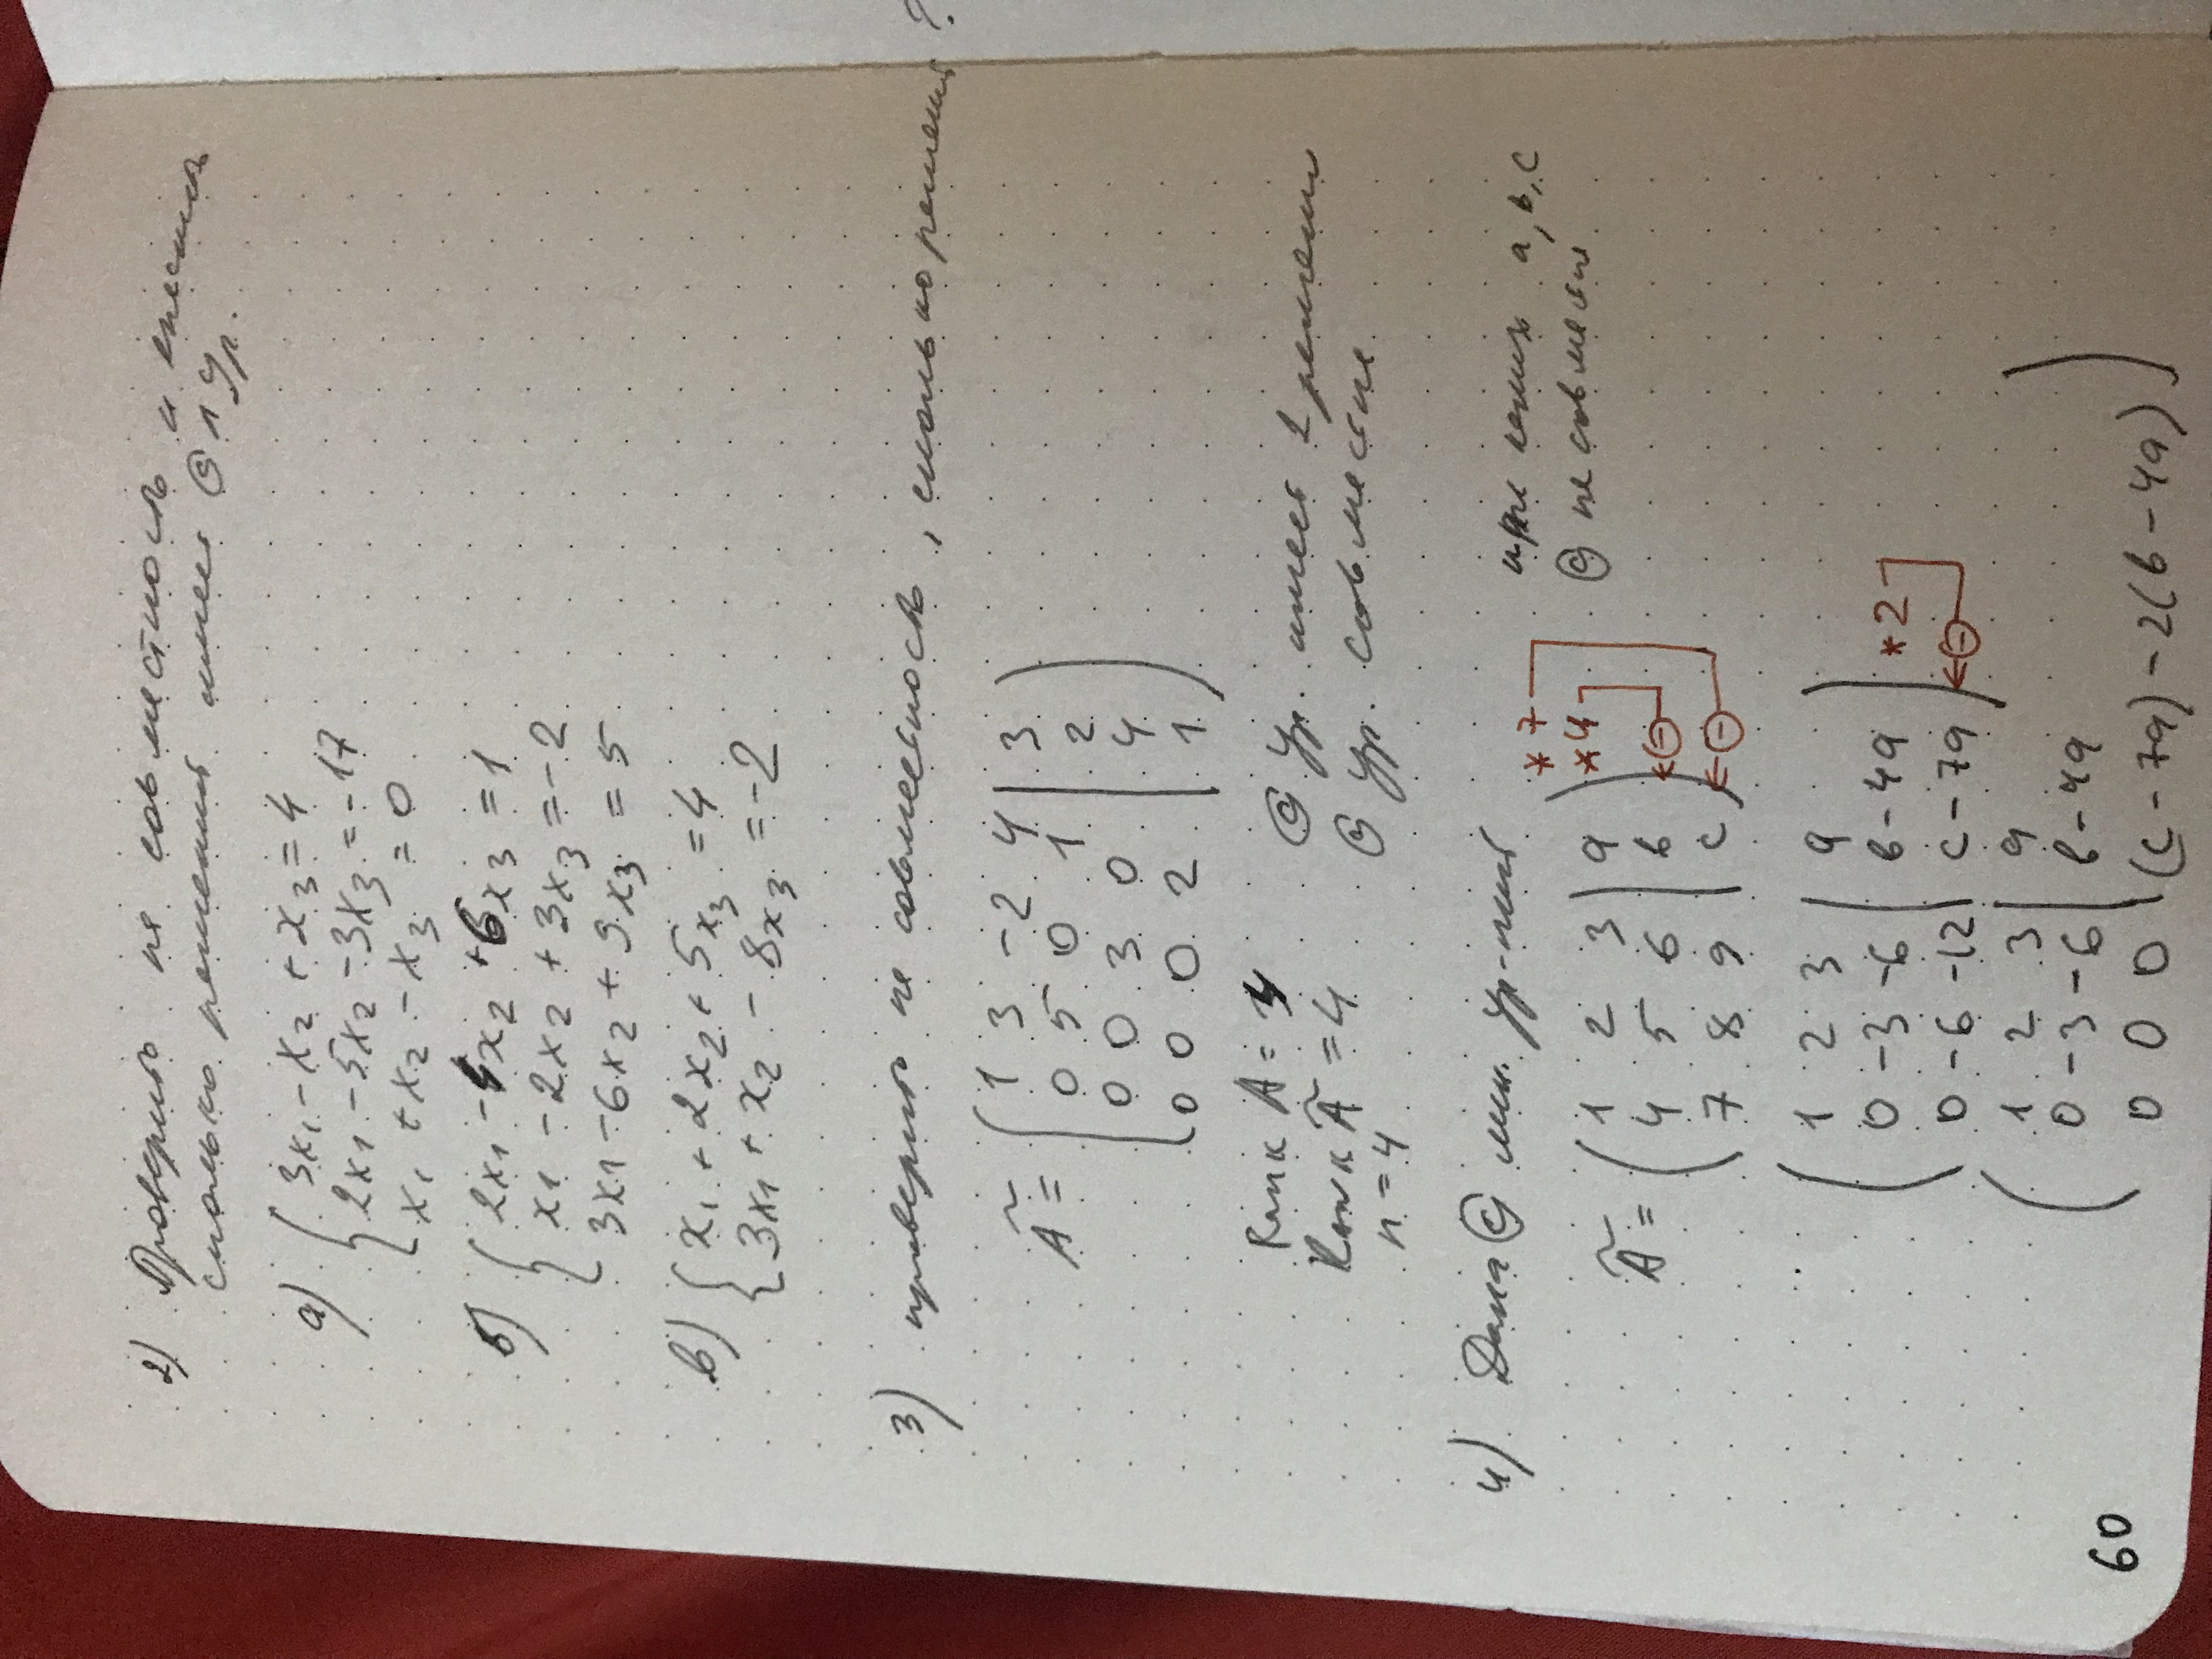 2) Проверить на совместность и
сколько решений имеет С Л Ур.
а) { 3x₁ - x₂ + x₃ = 4
2x₁ - 5x₂ - 3x₃ = -17
x₁ + x₂ - x₃ = 0
б) { 2x₁ - 4x₂ + 6x₃ = 1
x₁ - 2x₂ + 3x₃ = -2
3x₁ - 6x₂ + 9x₃ = 5
в) { x₁ + 2x₂ + 5x₃ = 4
3x₁ + x₂ - 8x₃ = -2
3) проверить на совместность, сколько решений ?
Ã = ( 1 3 -2 4 | 3 )
0 5 0 1 | 2
0 0 3 0 | 4
0 0 0 2 | 1
Rank A = 4 С Ур. имеет 1 решение
Rank Ã = 4 С Ур. совместна.
n = 4
4) Дана С лин. ур-ний при каких a, b, c
* 7 С не совместна
Ã = ( 1 2 3 | a ) * 4
4 5 6 | b ←⊖
7 8 9 | c ←⊖
( 1 2 3 | a )
0 -3 -6 | b - 4a * 2
0 -6 -12 | c - 7a ←⊖
( 1 2 3 | a )
0 -3 -6 | b - 4a
0 0 0 | (c - 7a) - 2(b - 4a)
60